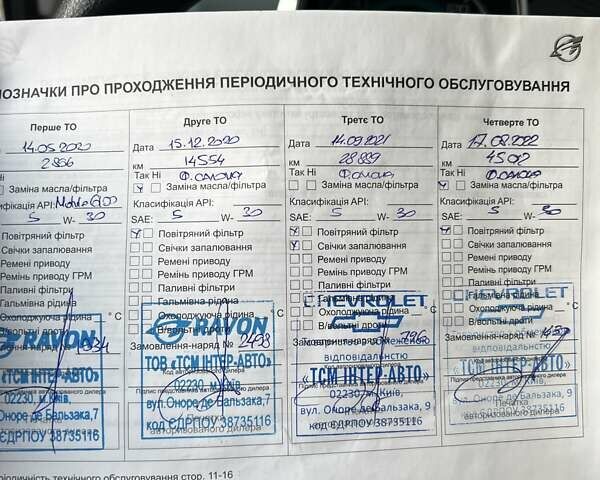 ПОЗНАЧКИ ПРО ПРОХОДЖЕННЯ ПЕРІОДИЧНОГО ТЕХНІЧНОГО ОБСЛУГОВУВАННЯ
Перше ТО
14.05.2020
2866
Заміна масла/фільтра
Класифікація API:
5 W- 30
Повітряний фільтр
Свічки запалювання
Ремені приводу
Ремінь приводу ГРМ
Паливні фільтри
Гальмівна рідина
Охолоджуюча рідина °C
В/вольтні дроти
RAVON
«ТСМ ІНТЕР-АВТО»
02230, м.Київ,
вул. Оноре де Бальзака,7
код ЄДРПОУ 38735116
Друге ТО
Дата 15.12.2020
км 14554
Так Ні
Y Заміна масла/фільтра
Класифікація API:
SAE: 5 W- 30
Y Повітряний фільтр
Свічки запалювання
Ремені приводу
Ремінь приводу ГРМ
Паливні фільтри
Гальмівна рідина
Охолоджуюча рідина °C
В/вольтні дроти
RAVON
Замовлення-наряд № 2498
ТОВ «ТСМ ІНТЕР-АВТО»
02230, м.Київ,
вул. Оноре де Бальзака,7
авторизованого дилера
код ЄДРПОУ 38735116
Третє ТО
Дата 14.09.2021
км 28889
Так Ні
Заміна масла/фільтра
Класифікація API:
SAE: 5 W- 30
Y Повітряний фільтр
Y Свічки запалювання
Ремені приводу
Ремінь приводу ГРМ
Паливні фільтри
Гальмівна рідина
CHEVROLET
Охолоджуюча рідина °C
В/вольтні дроти
Замовлення-наряд № 796
відповідальністю
«ТСМ ІНТЕР-АВТО»
02230, м.Київ,
вул. Оноре де Бальзака, 9
код ЄДРПОУ 38735116
Четверте ТО
Дата 17.08.2022
км
Так Ні
Y Заміна масла/фільтра
Класифікація API:
SAE: 5 W- 30
Y Повітряний фільтр
Свічки запалювання
Ремені приводу
Ремінь приводу ГРМ
Паливні фільтри
Гальмівна рідина
CHEVROLET
Охолоджуюча рідина °C
В/вольтні дроти
Замовлення-наряд №
відповідальністю
«ТСМ ІНТЕР-АВТО»
02230, м.Київ,
вул. Оноре де Бальзака, 9
Печатка
авторизованого дилера
код ЄДРПОУ 38735116
періодичність технічного обслуговування стор. 11-16